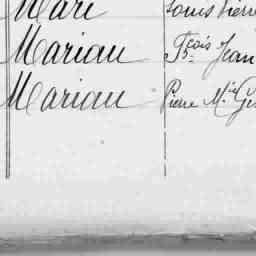 Mari Louis Pierre
Mariau Fçois Jean
Mariau Pierre M.ie